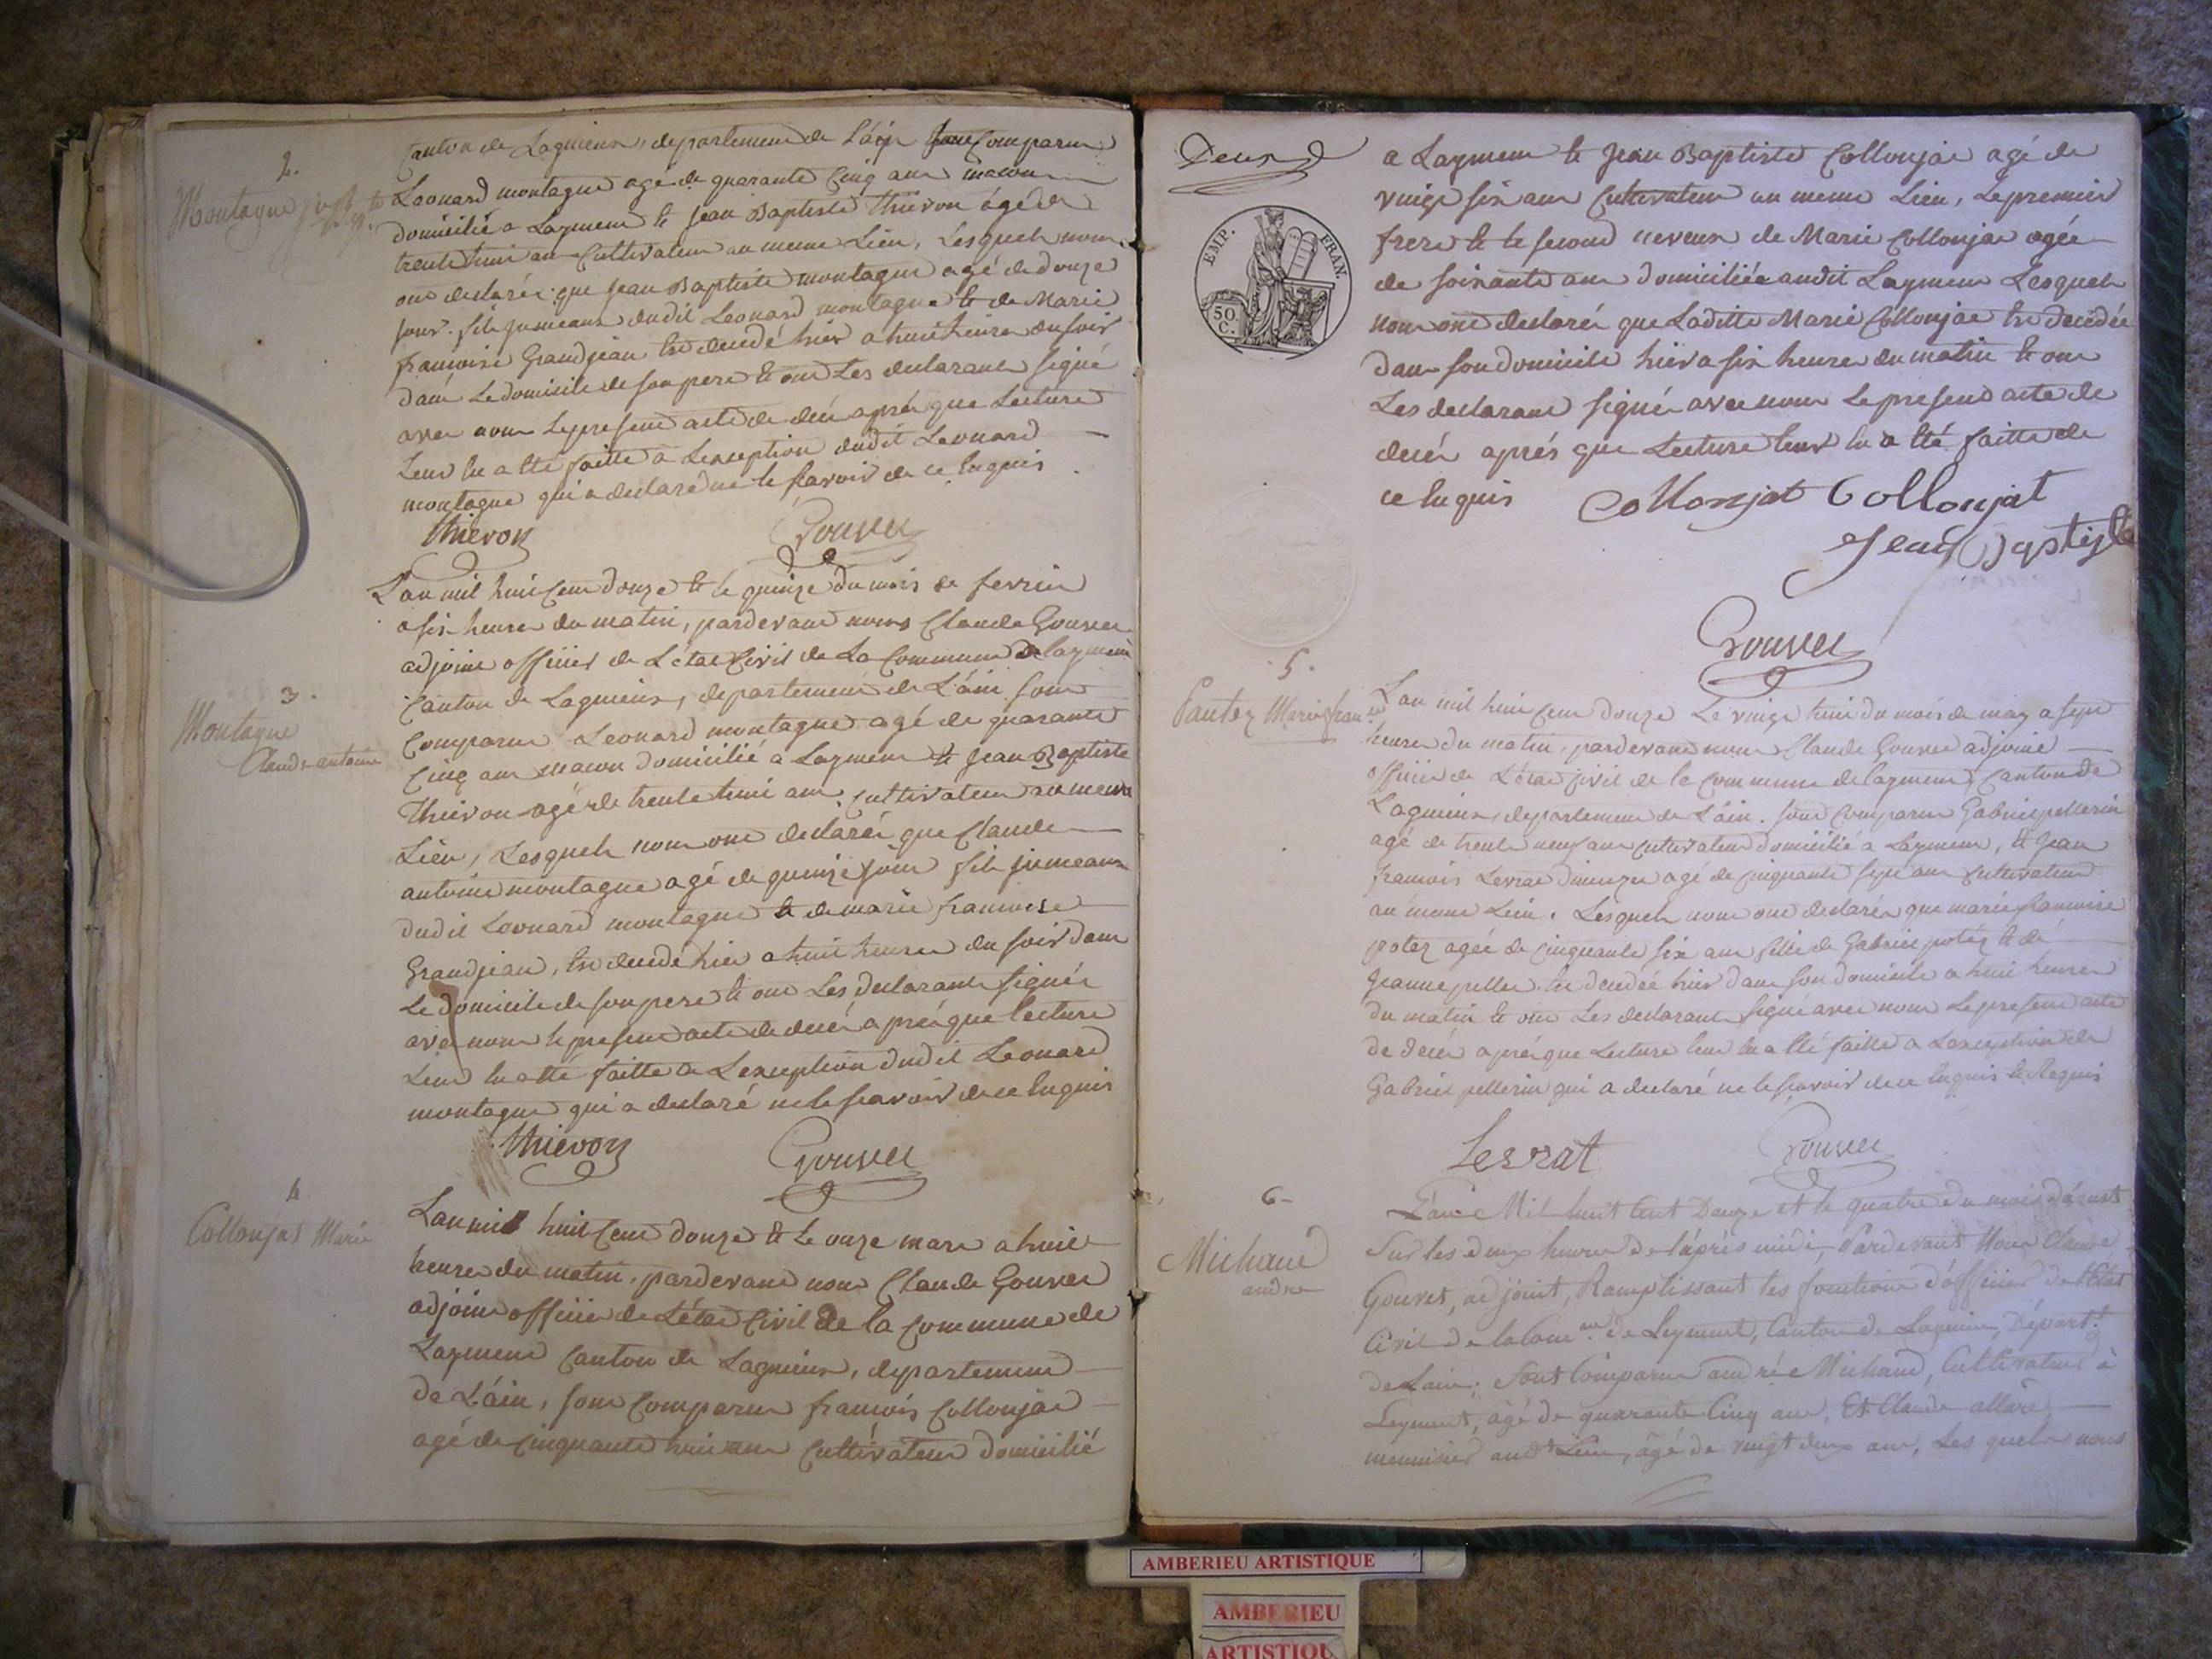 2.
Montagne
Canton de Lagnieux, departement de l'ain sont Comparus
Leonard montagne agé de quarante Cinq ans macon
domicilié a Laymens et Jean Baptiste thievon agé de
trente huit ans Cultivateur au meme Lieu, Lesquels nous
ont declarés que Jean Baptiste montagne agé de douze
jours fils jumeaux dudit Leonard montagne et de Marie
françoise Grandjean est decedé hier a huit heures du soir
dans Le domicile de son pere et ont Les declarants signé
avec nous Le present acte de decés aprés que Lecture
Leur en a eté faitte a Lexception dudit Leonard
montagne qui a declaré ne le scavoir de ce Enquis
thievon Gouvet
3.
Montagne
Claude antoine
L'an mil huit Cent douze et le quinze du mois de fevrier
a six heures du matin, pardevant nous Claude Gouvet
adjoint officier de L'état Civil de La Commune de laymens
Canton de Lagnieux, departement de L'ain sont
Comparus Leonard montagne agé de quarante
Cinq ans macon domicilié a Laymens et Jean Baptiste
thievon agé de trente huit ans Cultivateur au meme
Lieu, Lesquels nous ont declarés que Claude
antoine montagne agé de quinze jours fils jumeaux
dudit Leonard montagne et de marie francoise
Grandjean, est decedé hier a huit heures du soir dans
Le domicile de son pere et ont Les declarants signés
avec nous le present acte de decés aprés que lecture
Leur en a eté faitte a Lexception dudit Leonard
montagne qui a declaré ne le scavoir de ce Enquis
thievon Gouvet
4
Collonjat Marie
L'an mil huit Cent douze et le onze mars a huit
heures du matin, pardevant nous Claude Gouvet
adjoint officier de L'état Civil de la Commune de
Laymens Canton de Lagnieux, departement
de L'ain, sont Comparus francois Collonjat
agé de cinquante huit ans Cultivateur domicilié
Deux
EMP. FRAN.
50. C.
a Laymens et Jean Baptiste Collonjat agé de
vingt six ans Cultivateur au meme Lieu, Le premier
frere et le second neveux de Marie Collonjat agée
de soixante ans domiciliée audit Laymens Lesquels
nous ont declarés que Laditte Marie Collonjat est decedée
dans son domicile hier a six heures du matin et ont
Les declarants signés avec nous Le present acte de
decés aprés que Lecture leur en a eté faitte de
ce Enquis Collonjat Collonjat
Jean Baptiste
Gouvet
5.
Pautez Marie fran.se
L'an mil huit Cent douze Le vingt huit du mois de may a sept
heures du matin, pardevant nous Claude Gouvet adjoint
officier de L'état Civil de la Commune de laymens Canton de
Lagnieux, departement de L'ain. sont Comparus Gabriel pellerin
agé de trente neuf ans Cultivateur domicilié a Laymens, et Jean
francois Levrat agé de cinquante sept ans Cultivateur
au meme Lieu. Lesquels nous ont declarés que marie francoise
potez agée de cinquante six ans fille de Gabriel potéz et de
Jeanne peller est decedée hier dans son domicile a huit heures
du matin et ont Les declarants signé avec nous Le present acte
de decés aprés que Lecture leur en a eté faitte a Lexception de
Gabriel pellerin qui a declaré ne le scavoir de ce Enquis et Requis
Levrat Gouvet
6
Michaud
andre
L'an Mil huit Cent Douze et le quatre du mois d'août
Sur les deux heures de l'après midi, Pardevant Nous Claude
Gouvet, adjoint, Ramplissant les fonctions d'officier de l'Etat
Civil de la Com.ne de Leyment, Canton de Lagnieu, Départ.t
de Lain; Sont Comparus andré Michaud, Cultivateur à
Leyment, âgé de quarante Cinq ans, Et Claude allard
menuisier aud.t Lieu, âgé de vingt deux ans, Les quels nous
AMBERIEU ARTISTIQUE
AMBERIEU
ARTISTIQU